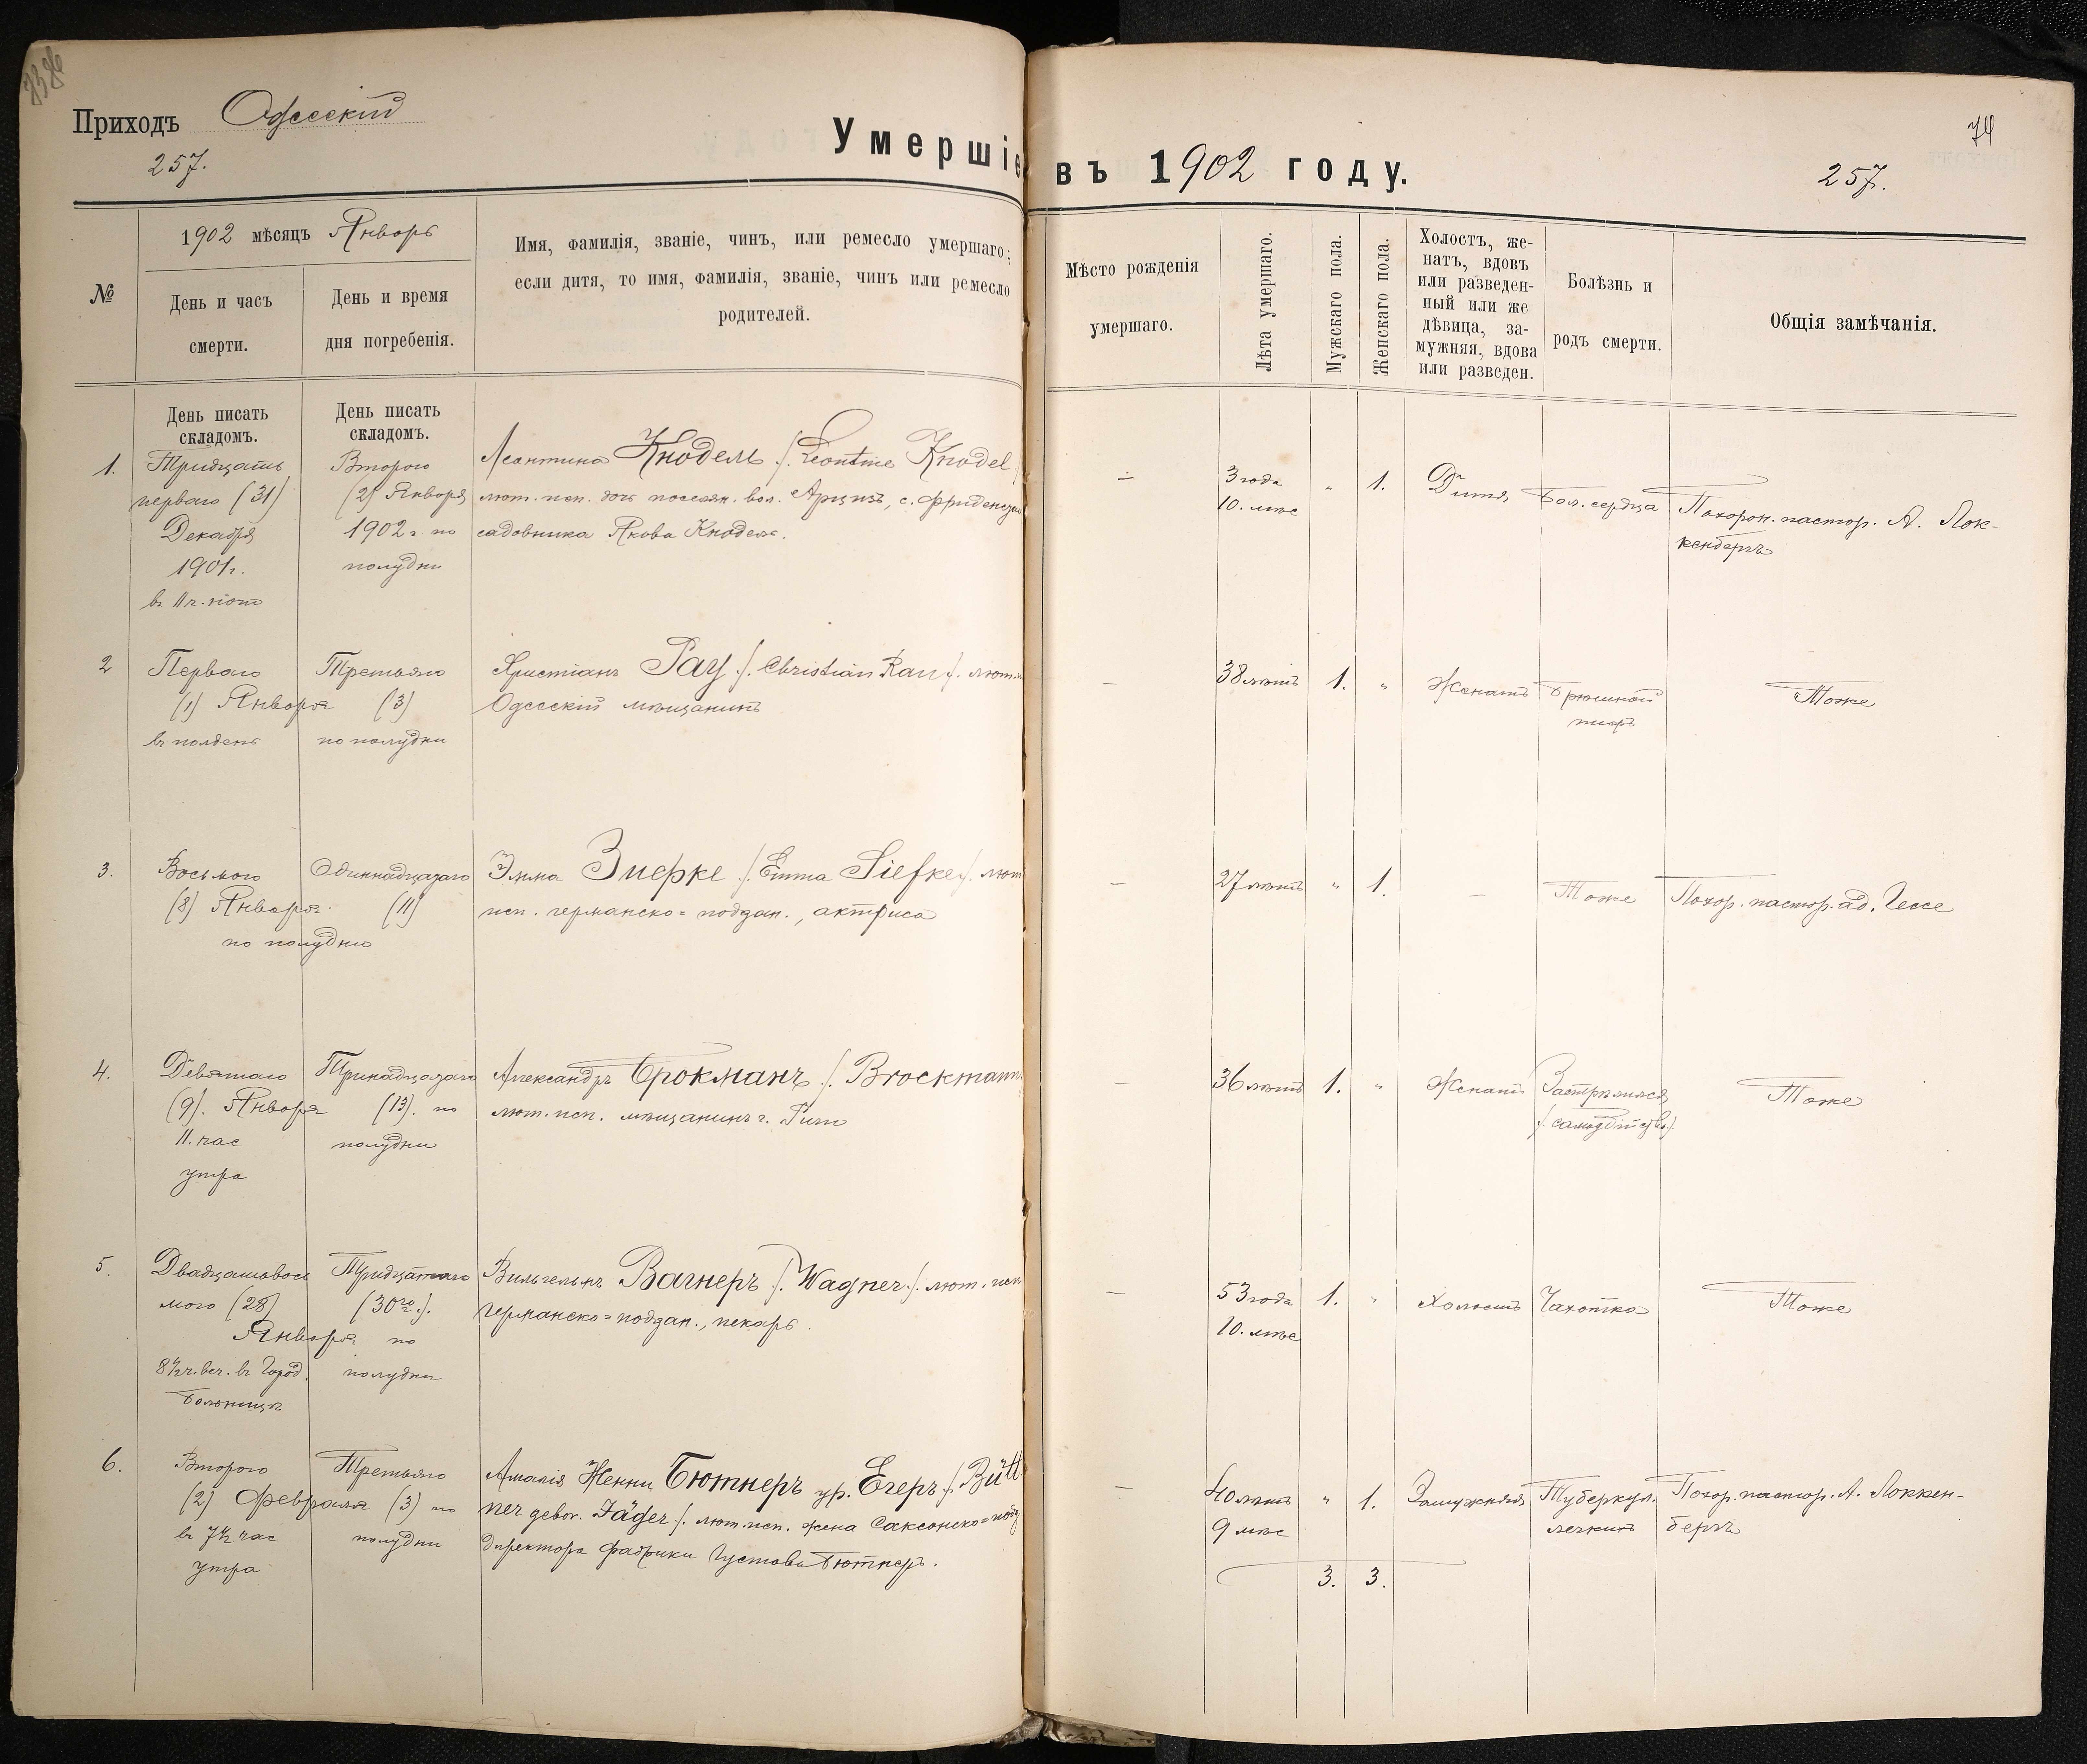 Приходъ Одесскій
257.
Умершіе въ 1902 году.
74
257.
№
1902 мѣсяцъ Январь
День и часъ
смерти.
День и время
дня погребенія.
Имя, фамилія, званіе, чинъ, или ремесло умершаго;
если дитя, то имя, фамилія, званіе, чинъ или ремесло
родителей.
Мѣсто рожденія
умершаго.
Лѣта умершаго.
Мужскаго пола.
Женскаго пола.
Холостъ, же-
натъ, вдовъ
или разведен-
ный или же
дѣвица, за-
мужняя, вдова
или разведен.
Болѣзнь и
родъ смерти.
Общія замѣчанія.
День писать
складомъ.
День писать
складомъ.
1.
Тридцать
перваго (31)
Декабря
1901г.
въ 11 ч. ночи
Второго
(2) Января
1902 г. по
полудни
Леонтина Кнодель /. Leontine Knodel /.
лют. исп. дочь поселян. вол. Арцизъ, с. Фриденсталь
садовника Якова Кнодель.
—
3 года
10. мѣс
"
1.
Дитя
Бол. сердца
Похорон. пастор. А. Лок-
кенбергъ
2
Перваго
(1) Января
въ полдень
Третьяго
(3)
по полудни
Христіанъ Рау /. Christian Rau /. лют.
Одесскій мѣщанинъ
—
38 лѣтъ
1.
"
Женатъ
Брюшной
тифъ
Тоже
3.
Восьмого
(8) Января
по полудню
Одиннадцатаго
(11)
Эмма Зиефке /. Emma Siefke /. лют
исп. германско-поддан., актриса
—
27 лѣтъ
"
1.
—
Тоже
Похор. пастор. ад. Гессе
4.
Девятаго
(9). Января
11. час
утра
Тринадцатаго
(13). по
полудни
Александръ Брокманъ /. Brockmann
лют. исп. мѣщанинъ г. Риги
—
36 лѣтъ
1.
"
Женатъ
Застрѣлился
/. самоубійство /.
Тоже
5.
Двадцатьвось
мого (28)
Января
8½ ч. веч. въ Город.
Больницѣ
Тридцатаго
(30го).
по
полудни
Вильгельмъ Вагнеръ /. Wagner /. лют. исп
германско-поддан., пекарь.
—
53 года
10. мѣс
1.
"
Холостъ
Чахотка
Тоже
6.
Второго
(2) Февраля
въ 7½ час
утра
Третьяго
(3) по
полудни
Амалія Женни Бютнеръ ур. Егеръ /. Bütt
ner gebor. Jäger /. лют. исп. жена Саксонско-подд
директора фабрики Густава Бютнеръ.
—
40 лѣтъ
9 мѣс
"
1.
Замужняя
Туберкул.
легкихъ
Похор. пастор. А. Локкен-
бергъ
3.
3.